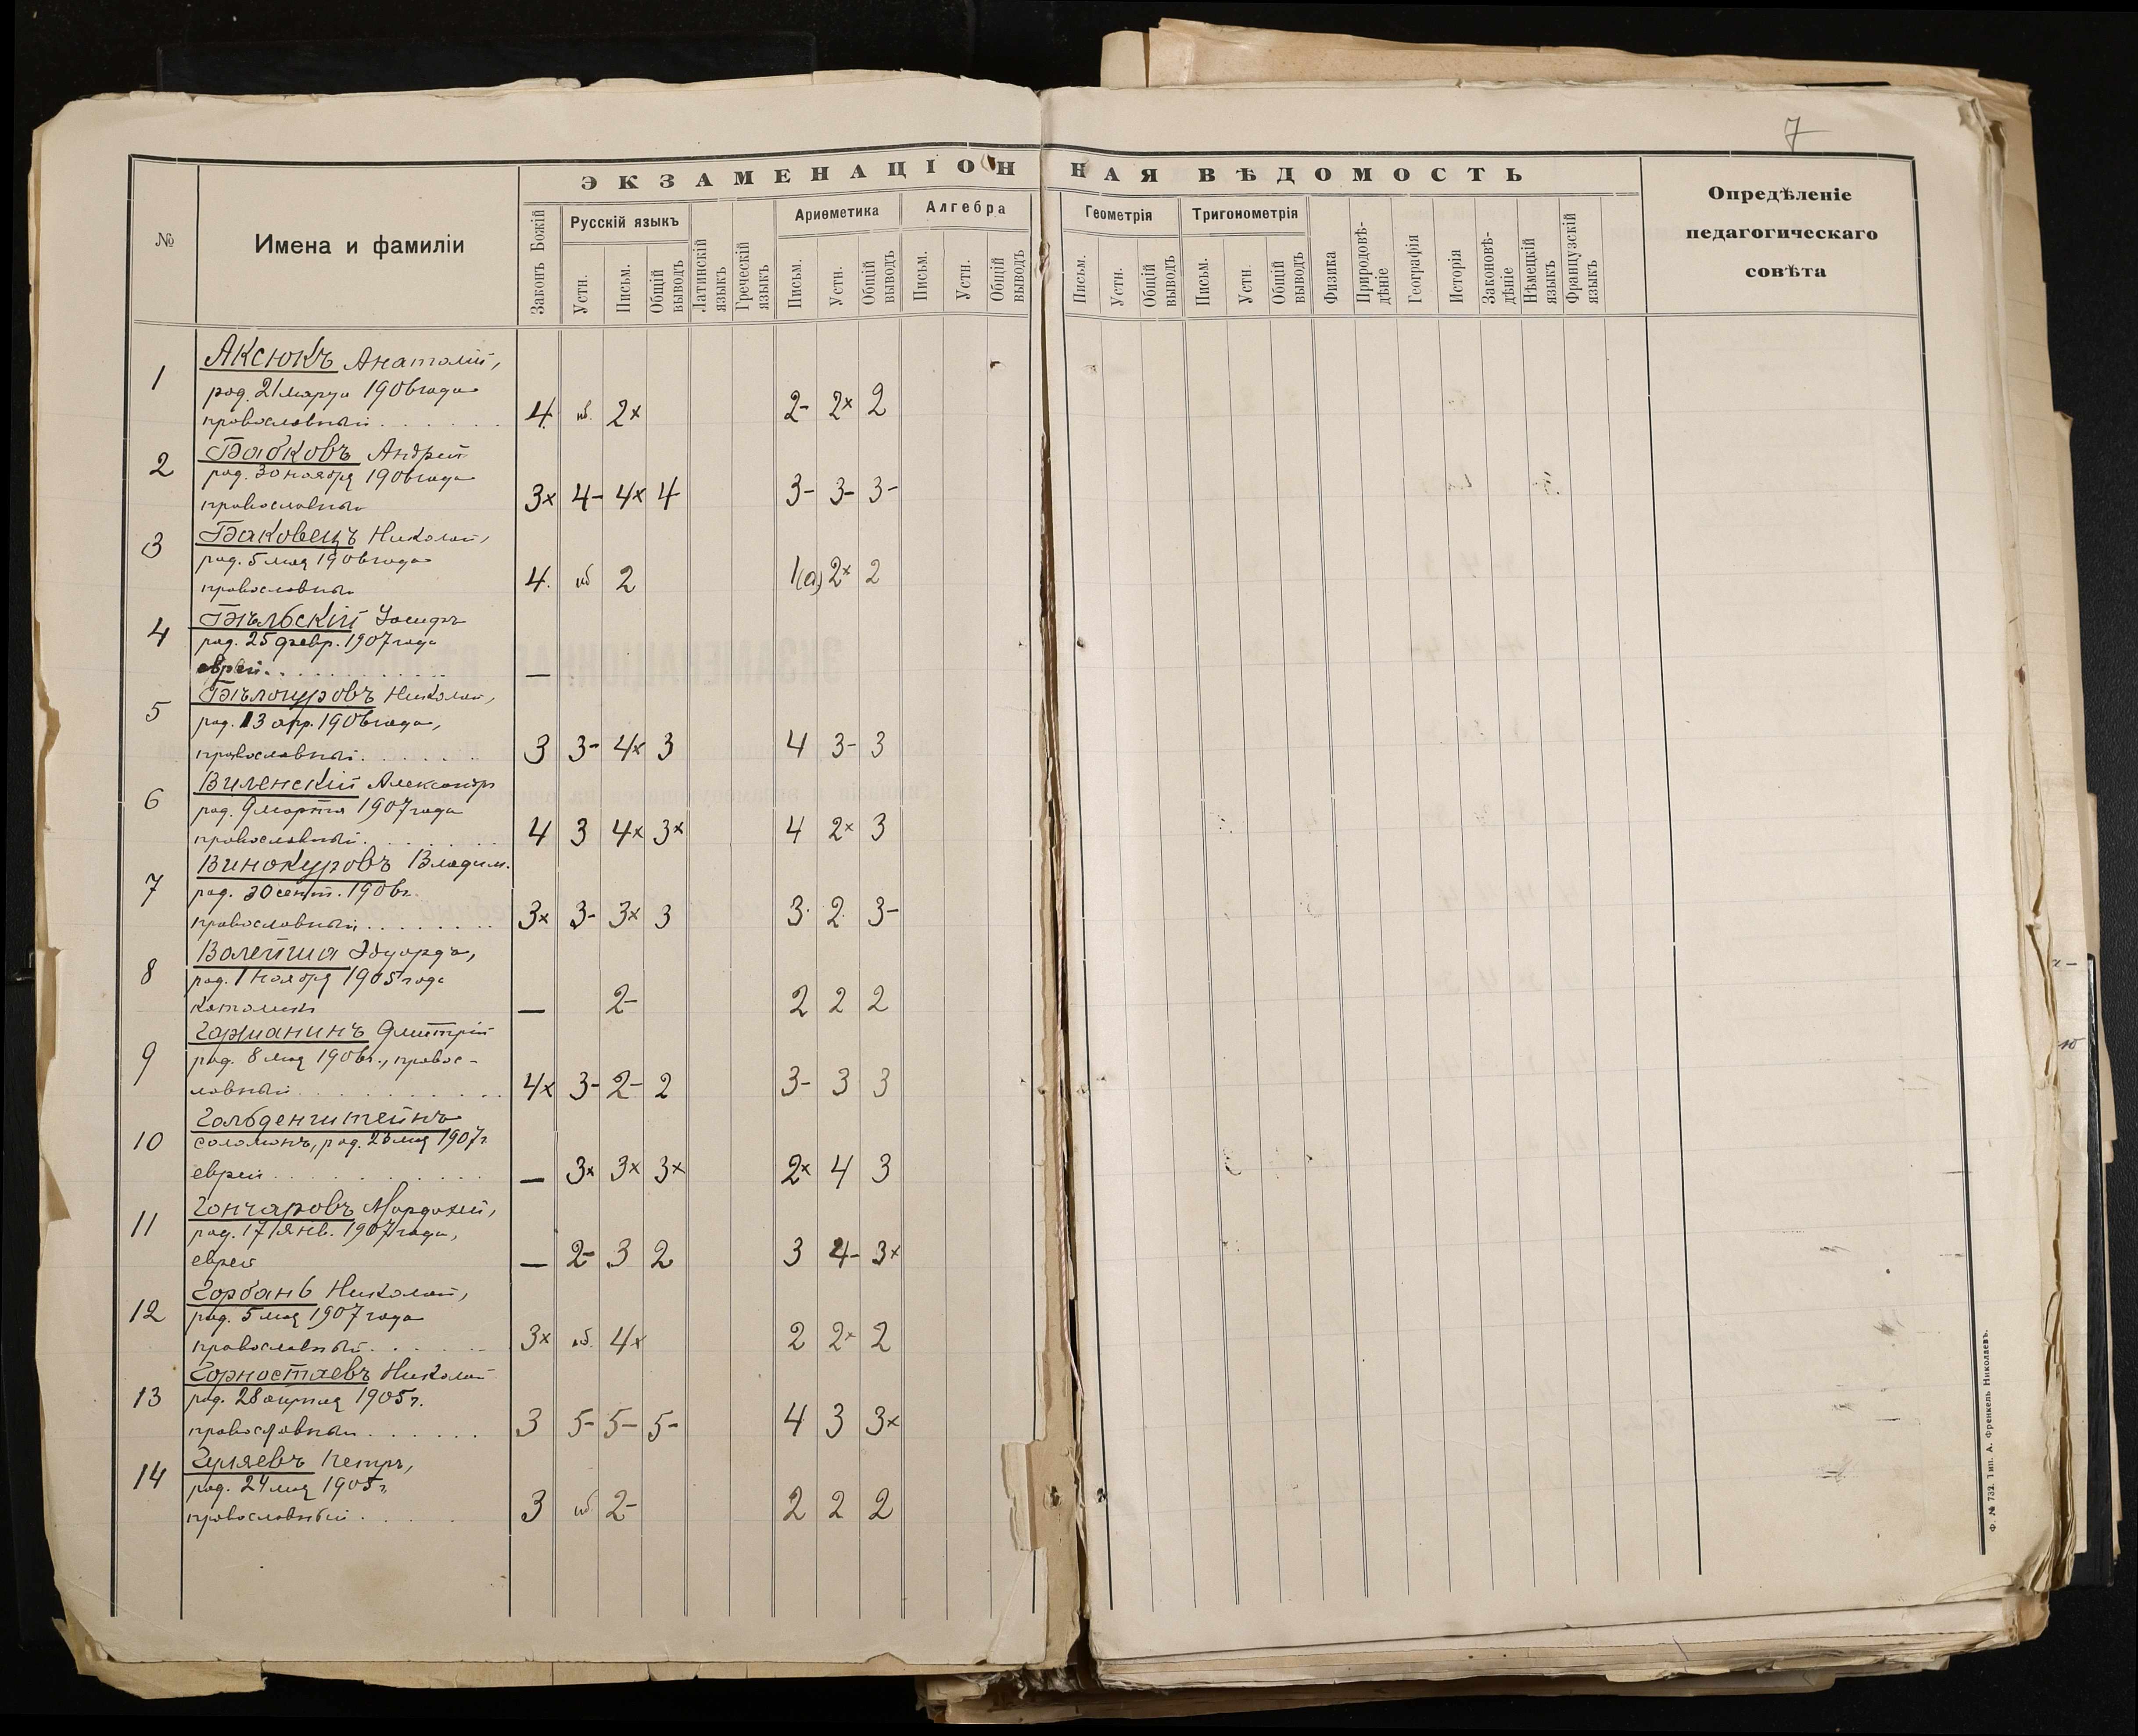 7
ЭКЗАМЕНАЦІОННАЯ ВѢДОМОСТЬ
№
Имена и фамиліи
Законъ Божій
Русскій языкъ
Устн.
Письм.
Общій выводъ
Латинскій языкъ
Греческій языкъ
Ариѳметика
Письм.
Устн.
Общій выводъ
Алгебра
Письм.
Устн.
Общій выводъ
Геометрія
Письм.
Устн.
Общій выводъ
Тригонометрія
Письм.
Устн.
Общій выводъ
Физика
Природовѣ-дѣніе
Географія
Исторія
Законовѣ-дѣніе
Нѣмецкій языкъ
Французскій языкъ
Опредѣленіе
педагогическаго
совѣта
1 Аксюкъ Анатолій,
род. 21 марта 1906 года
православный 4 нб. 2× 2- 2× 2
2 Бабковъ Андрей
род. 30 ноября 1906 года
православный 3× 4- 4× 4 3- 3- 3-
3 Баковецъ Николай,
род. 5 мая 1906 года
православный 4 нб 2 1(а) 2× 2
4 Бѣльскій Іосифъ
род. 25 февр. 1907 года
еврей —
5 Бѣлоцуровъ Николай,
род. 13 апр. 1906 года,
православный 3 3- 4× 3 4 3- 3
6 Виленскій Александръ
род. 9 марта 1907 года
православный 4 3 4× 3× 4 2× 3
7 Винокуровъ Владим.
род. 30 сент. 1906 г.
православный 3× 3- 3× 3 3 2 3-
8 Волейша Эдуардъ,
род. 1 ноября 1905 года
католикъ — 2- 2 2 2
9 Гаржанинъ Дмитрій
род. 8 мая 1906 г., правос-
лавный 4× 3- 2- 2 3- 3 3
10 Гольденштейнъ
Соломонъ, род. 23 мая 1907 г.
еврей — 3× 3× 3× 2× 4 3
11 Гончаровъ Мордохей,
род. 17 янв. 1907 года,
еврей — 2- 3 2 3 4- 3×
12 Горбань Николай,
род. 5 мая 1907 года
православный 3× нб. 4× 2 2× 2
13 Горностаевъ Николай
род. 28 апрѣля 1905 г.
православный 3 5- 5- 5- 4 3 3×
14 Гуляевъ Петръ,
род. 24 мая 1905 г.
православный 3 нб 2- 2 2 2
Ф. № 732. Тип. А. Френкель Николаевъ.